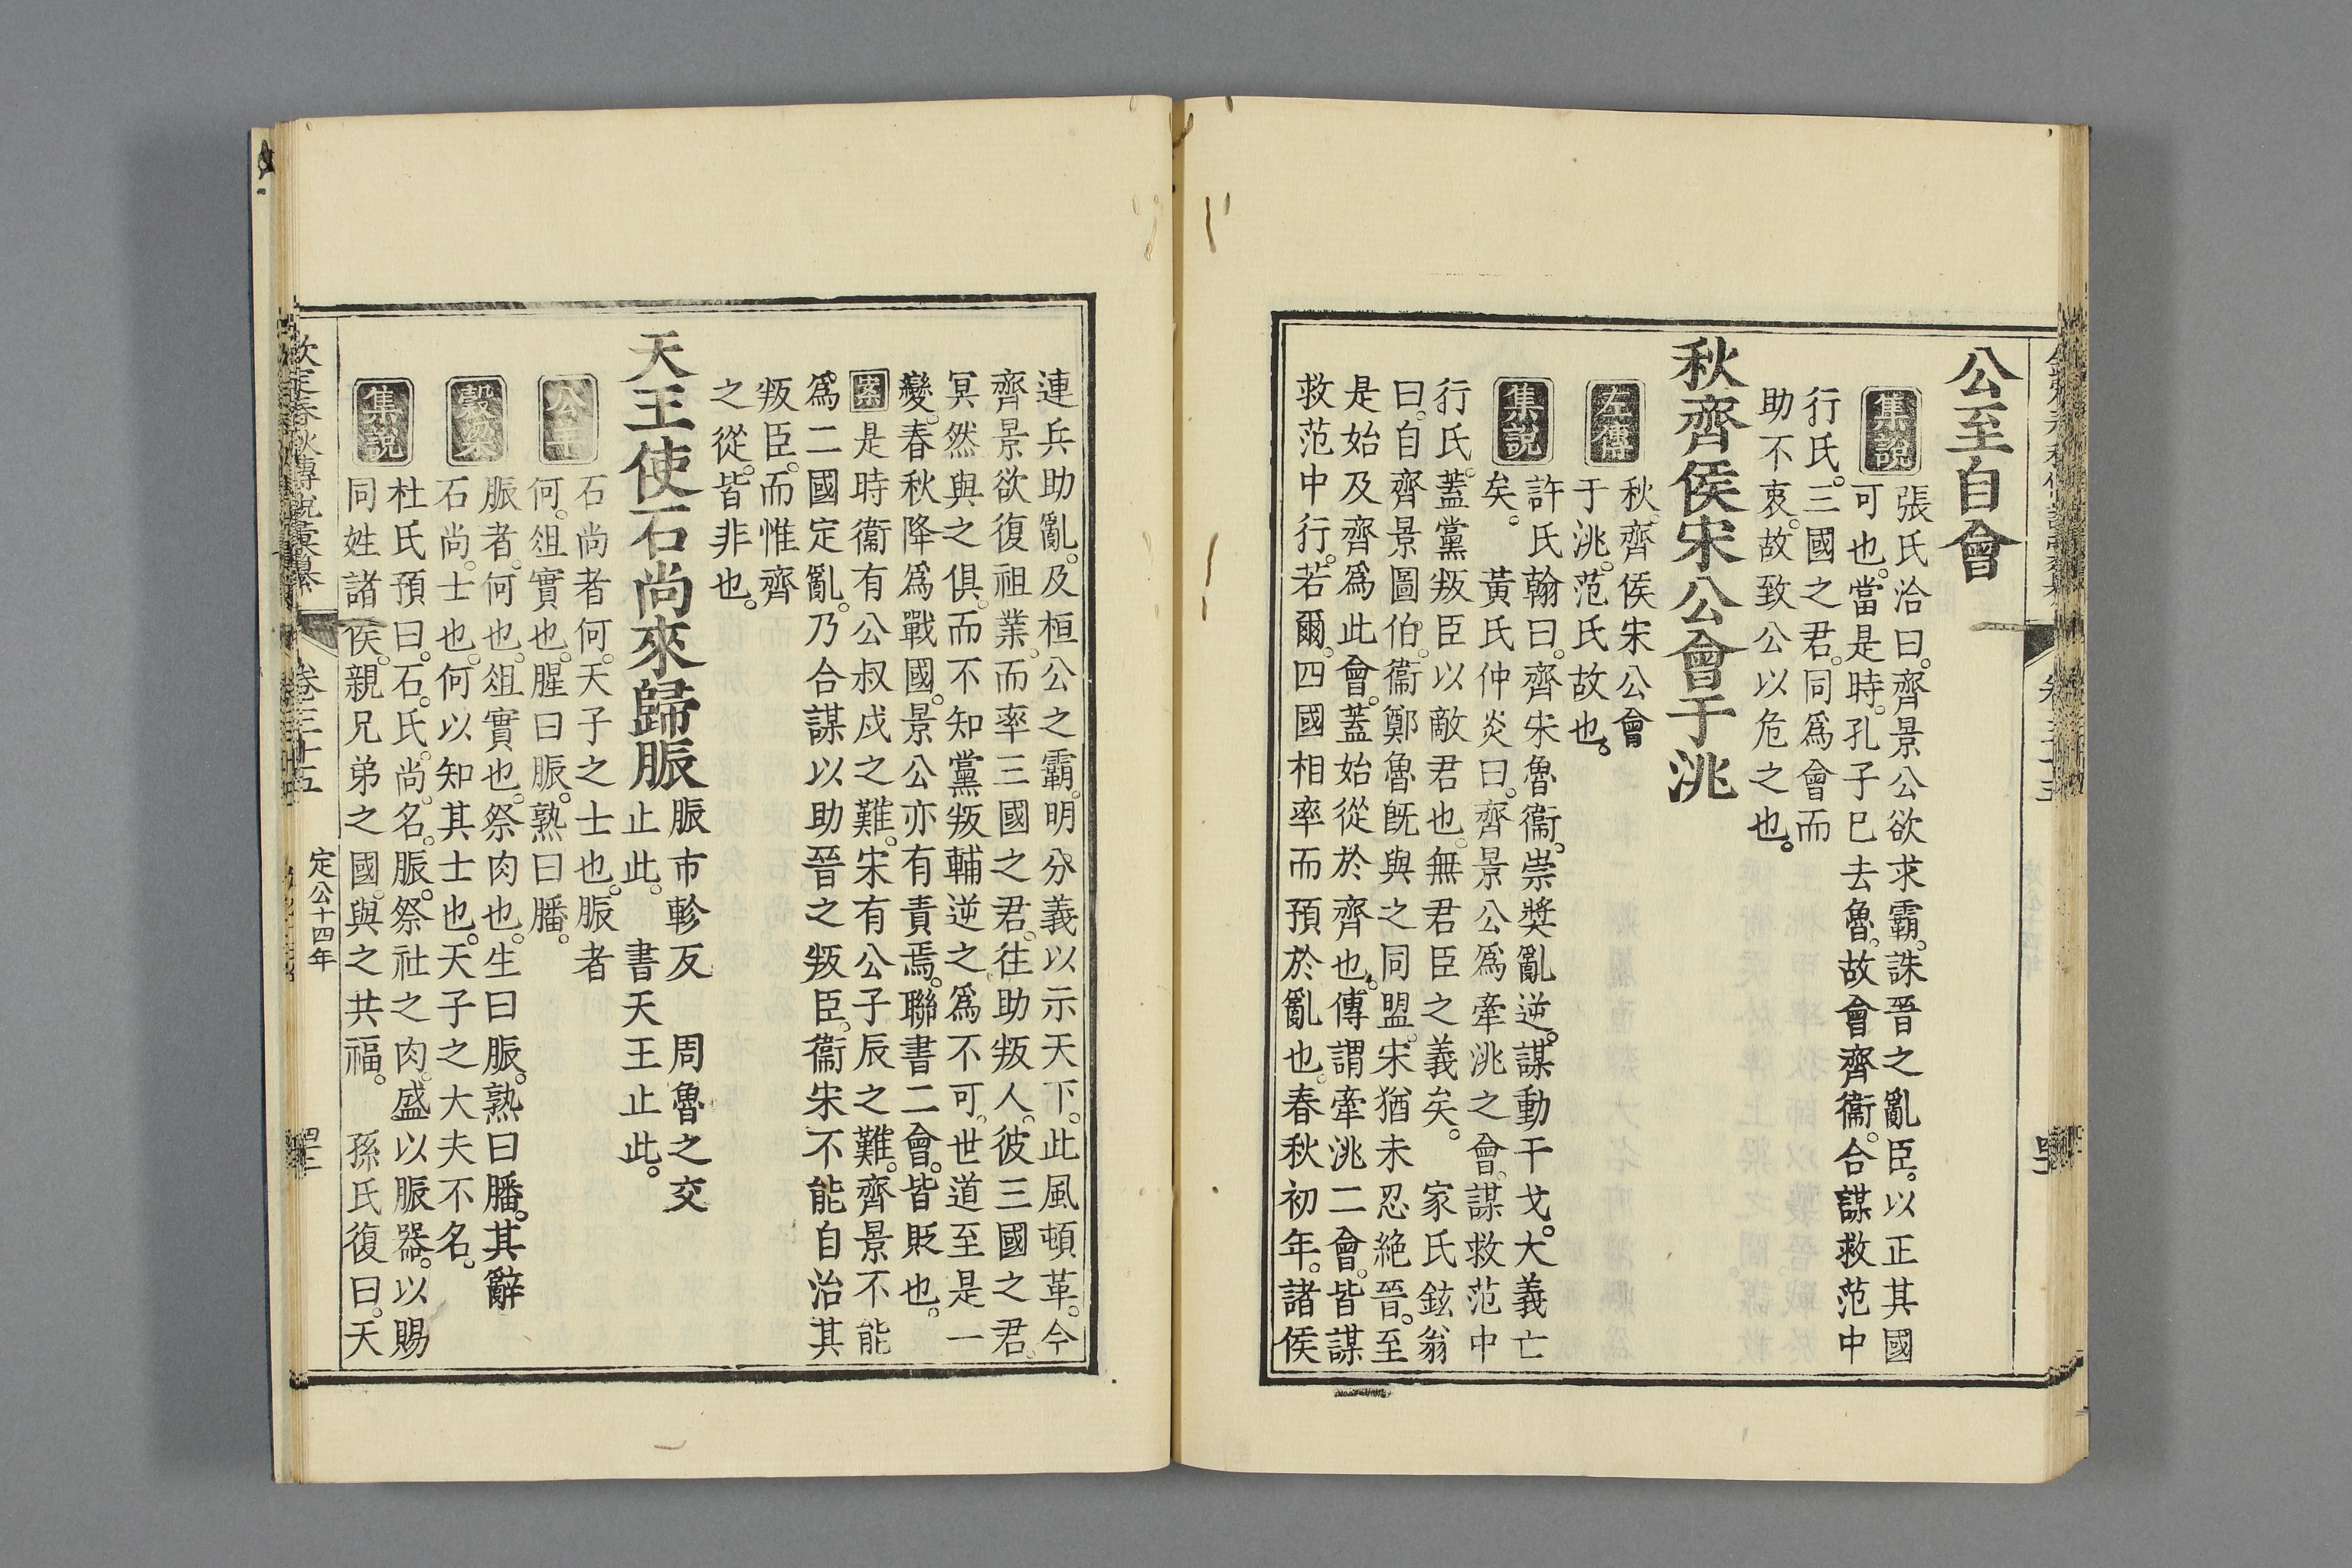 公至自會
集說
張氏洽曰。齊景公欲求霸。誅晉之亂臣。以正其國
可也。當是時。孔子已去魯。故會齊衞。合謀救范中
行氏。三國之君。同爲會而
助不衷。故致公以危之也。
秋齊侯宋公會于洮
左傳
秋。齊侯宋公會
于洮。范氏故也。
集說
許氏翰曰。齊宋魯衞。崇奬亂逆。謀動干戈。大義亡
矣。　黃氏仲炎曰。齊景公爲牽洮之會。謀救范中
行氏。蓋黨叛臣以敵君也。無君臣之義矣。　家氏鉉翁
曰。自齊景圖伯。衞鄭魯旣與之同盟。宋猶未忍絶晉。至
是始及齊爲此會。蓋始從於齊也。傳謂牽洮二會。皆謀
救范中行。若爾。四國相率而預於亂也。春秋初年。諸侯
連兵助亂。及桓公之霸。明分義以示天下。此風頓革。今
齊景欲復祖業。而率三國之君。往助叛人。彼三國之君。
冥然與之俱。而不知黨叛輔逆之爲不可。世道至是一
變。春秋降爲戰國。景公亦有責焉。聯書二會。皆貶也。
案是時衞有公叔戍之難。宋有公子辰之難。齊景不能
爲二國定亂。乃合謀以助晉之叛臣。衞宋不能自治其
叛臣。而惟齊
之從。皆非也。
天王使石尚來歸脤
脤市軫反　周魯之交
止此。　書天王止此。
公羊
石尚者何。天子之士也。脤者
何。俎實也。腥曰脤。熟曰膰。
穀梁
脤者。何也。俎實也。祭肉也。生曰脤。熟曰膰。其辭
石尚。士也。何以知其士也。天子之大夫不名。
集說
杜氏預曰。石。氏。尚。名。脤。祭社之肉。盛以脤器。以賜
同姓諸侯。親兄弟之國。與之共福。　孫氏復曰。天
欽定春秋傳說彙纂
卷三十五
定公十四年